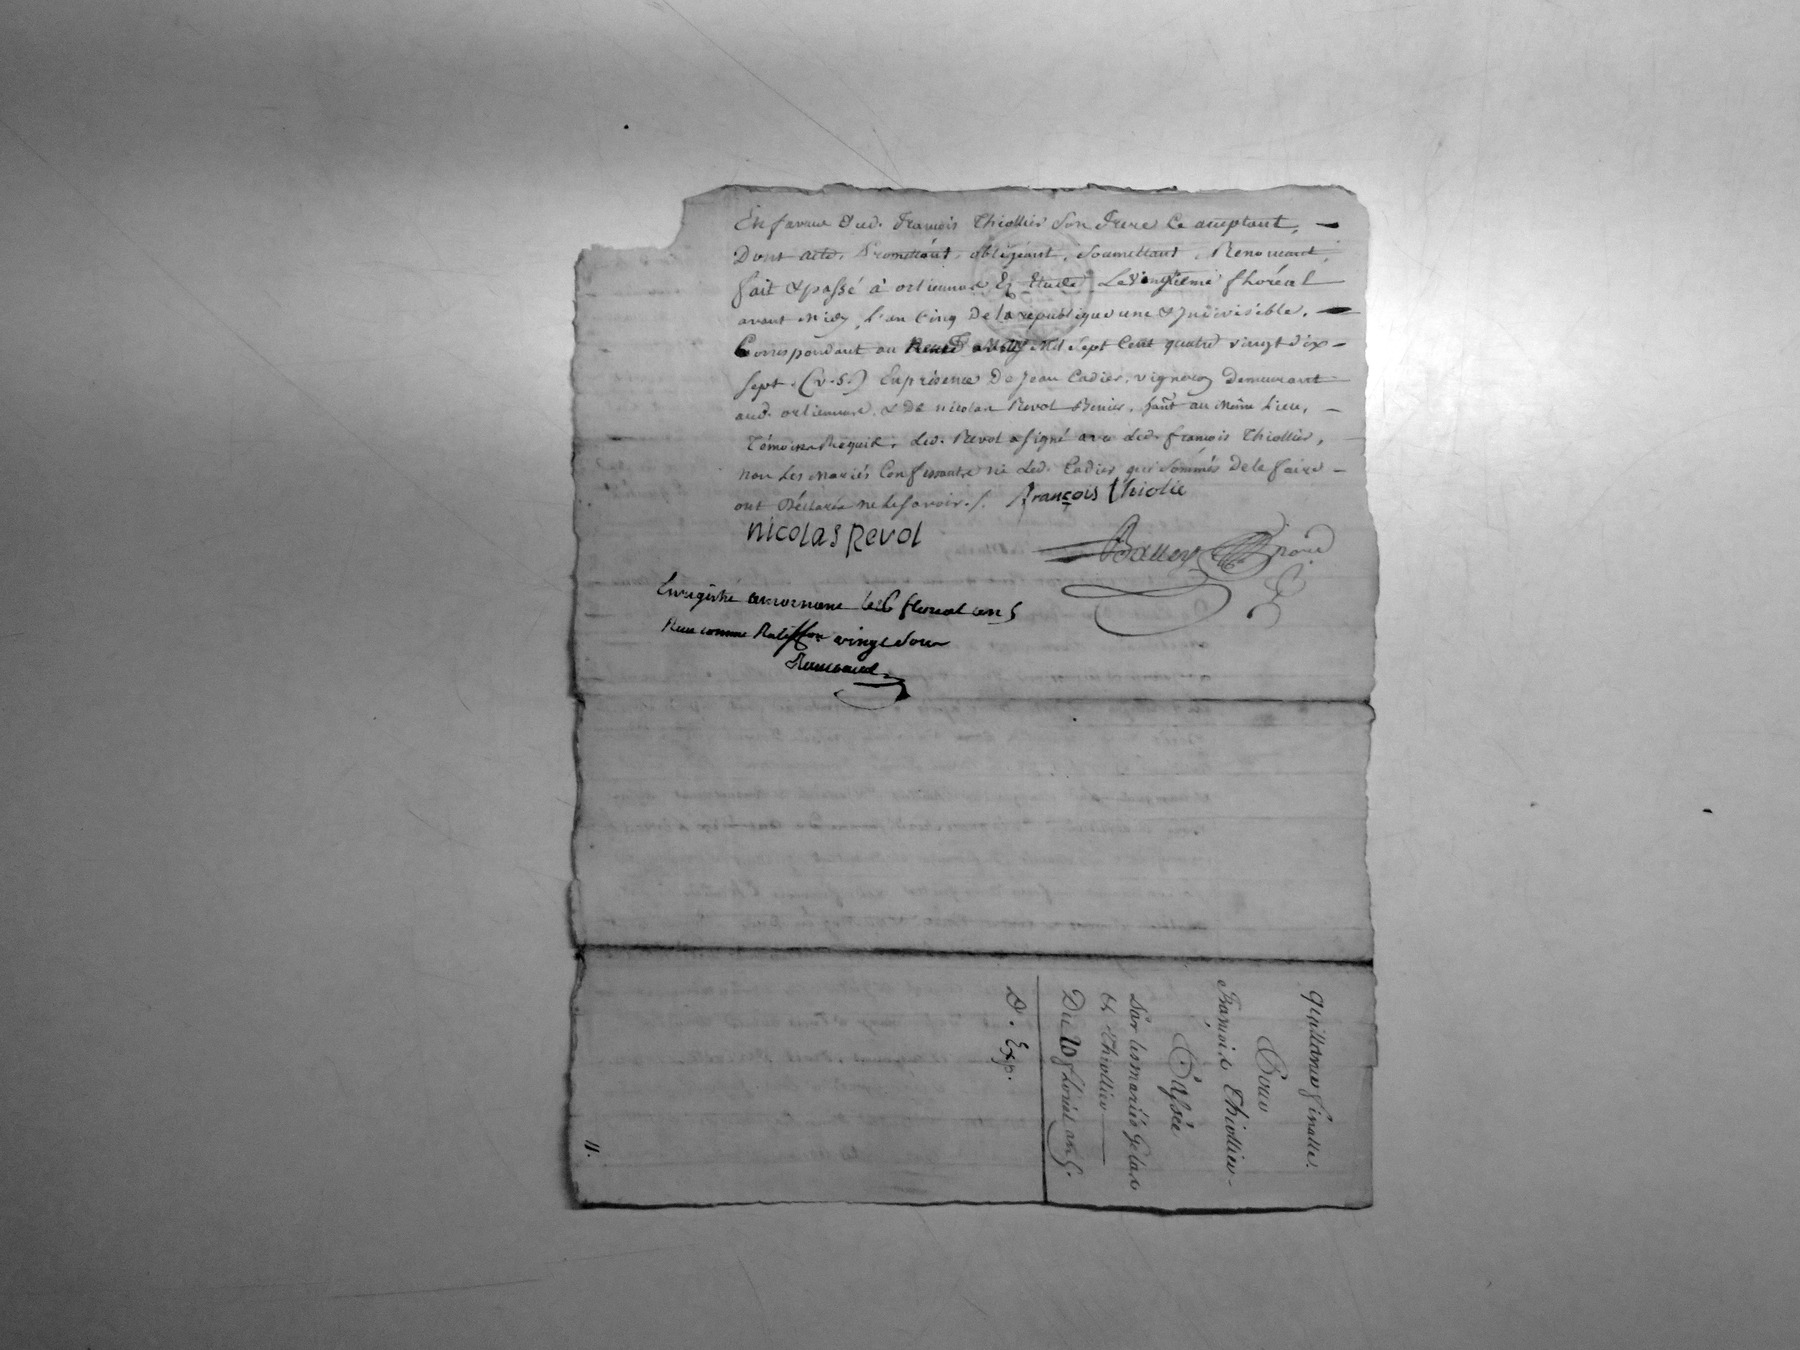 En faveur dud. François Thiollier Son frere Ce acceptant,
Dont acte, Promettant, obligeant, Soumettant, Renonçant,
fait & passé à orliennas En Etude Le vingtieme floréal
avant midy, l'an Cinq De la republique une & Indivisible,
Correspondant au Neuf Mil Sept Cent quatre vingt dix
Sept. (v.S.) En présence De Jean Cadier, vigneron demeurant
aud. orliennas, & De nicolas Revol au Même Lieu,
Témoins Requis, Led. Revol a signé avec Led. françois Thiollier,
non Les mariés Confessants ni Led. Cadier qui Sommés de le faire
ont Déclarés ne le savoir./. François thiolie
nicolas Revol
Enregistré a le floreal an 5
vingt Sous
quittance finalle.
Pour
François Thiollier
Passée
Par les mariés
et Thiollier
Du 20 floreal an 5.
D. Exp.
11.